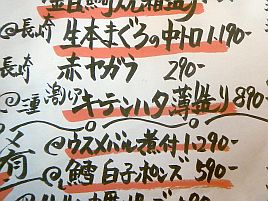 @長崎 生本まぐろの中トロ1.190-
長崎 赤ヤガラ 290-
@三重 激レア キテンハタ薄造り 890
〆肴 @ウスメバル煮付1.290-
@鱈白子ポンズ 590-